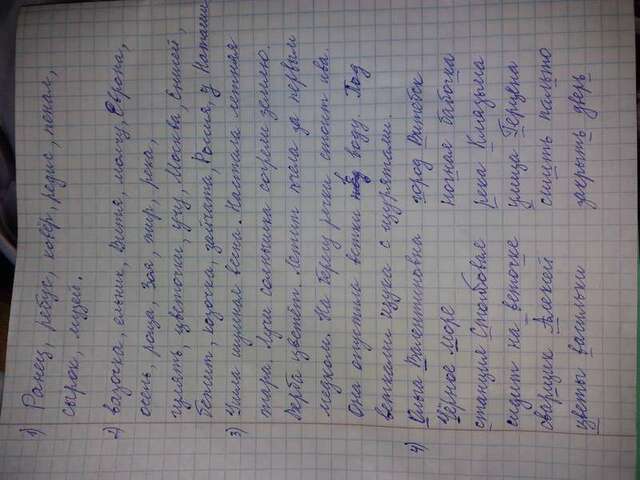 1) Ранец, ребус, ковёр, редис, пенал,
сырок, музей.
2) вазочка, ельник, Витя, молчу, Европа,
осень, роща, Зоя, жир, река,
гулять, цветочки, учу, Москва, Енисей,
бежит, козочка, зайчата, Россия, у Наташи
3) Ушла шумная весна. Настала летняя
жара. Лучи солнышка согрели землю.
Верба цветёт. Летит пчела за первым
медком. На берегу речки стоит ива.
Она опустила ветки в воду. Под
ветками щука с щурятами.
4) Ольга Валентиновна город Витебск
Чёрное Море ночная бабочка
станция Столбовая река Клязьма
сидит на веточке улица Герцена
сварщик Алексей сшить пальто
цветы васильки закрыть дверь